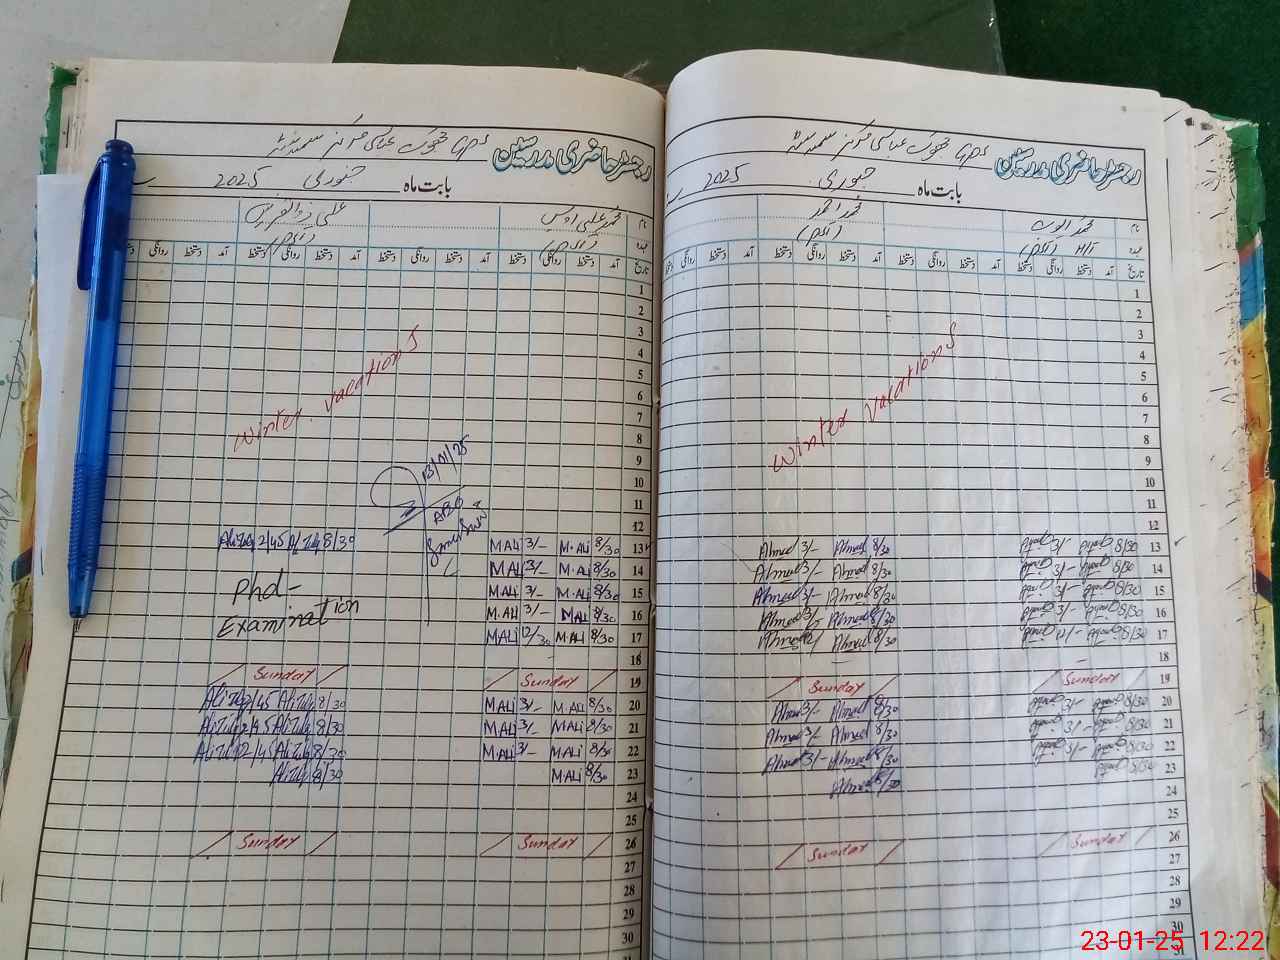 رجسٹر حاضری مدرسین GPS جھوک عباسی مرکز سمہ سٹہ
بابت ماہ جنوری 2025
نام محمد علی اویس علی ذوالقرنین
عہدہ
تاریخ آمد دستخط روانگی دستخط آمد دستخط روانگی دستخط آمد دستخط روانگی دستخط آمد دستخط روانگی
1
2
3
4
5
6
7
8
9
10
11
12
Winter Vacations
13/01/25
AEO
13 M.ALi 8/30 M ALi 3/- Ali Zulq 8/30 Ali Zulq 2/45
14 M.ALi 8/30 M ALi 3/-
15 M.ALi 8/30 M ALi 3/-
16 M.ALi 8/30 M.ALi 3/-
17 M.ALi 8/30 M ALi 12/30
Phd-
Examination
18
19 Sunday Sunday
20 M.ALi 8/30 M ALi 3/- Ali Zulq 8/30 Ali Zulq 2/45
21 M ALi 8/30 M ALi 3/- Ali Zulq 8/30 Ali Zulq 2/45
22 M ALi 8/30 M ALi 3/- Ali Zulq 8/30 Ali Zulq 2/45
23 M ALi 8/30 Ali Zulq 8/30
24
25
26 Sunday Sunday
27
28
29
30
رجسٹر حاضری مدرسین GPS جھوک عباسی مرکز سمہ سٹہ
بابت ماہ جنوری 2025
نام محمد ایوب محمد احمد
عہدہ H/T
تاریخ آمد دستخط روانگی دستخط آمد دستخط روانگی دستخط آمد دستخط روانگی دستخط آمد دستخط روانگی دستخط
1
2
3
4
5
6
7
8
9
10
11
12
Winter Vacations
13 8/30 3/- Ahmed 8/30 Ahmed 3/-
14 8/30 3/- Ahmed 8/30 Ahmed 3/-
15 8/30 3/- Ahmed 8/30 Ahmed 3/-
16 8/30 3/- Ahmed 8/30 Ahmed 3/-
17 8/30 12/- Ahmed 8/30 Ahmed 12/
18
19 Sunday Sunday
20 8/30 3/- Ahmed 8/30 Ahmed 3/-
21 8/30 3/- Ahmed 8/30 Ahmed 3/-
22 8/30 3/- Ahmed 8/30 Ahmed 3/-
23 8/30 Ahmed 8/30
24
25
26 Sunday Sunday
27
28
29
30
31
23-01-25 12:22